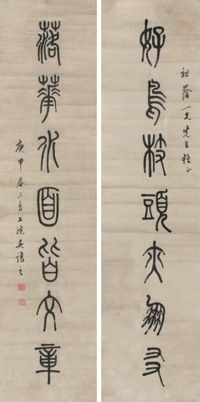 祖蔭一兄先生
好鳥枝頭亦朋友
落華水面皆文章
庚申春二月上浣吳讓之